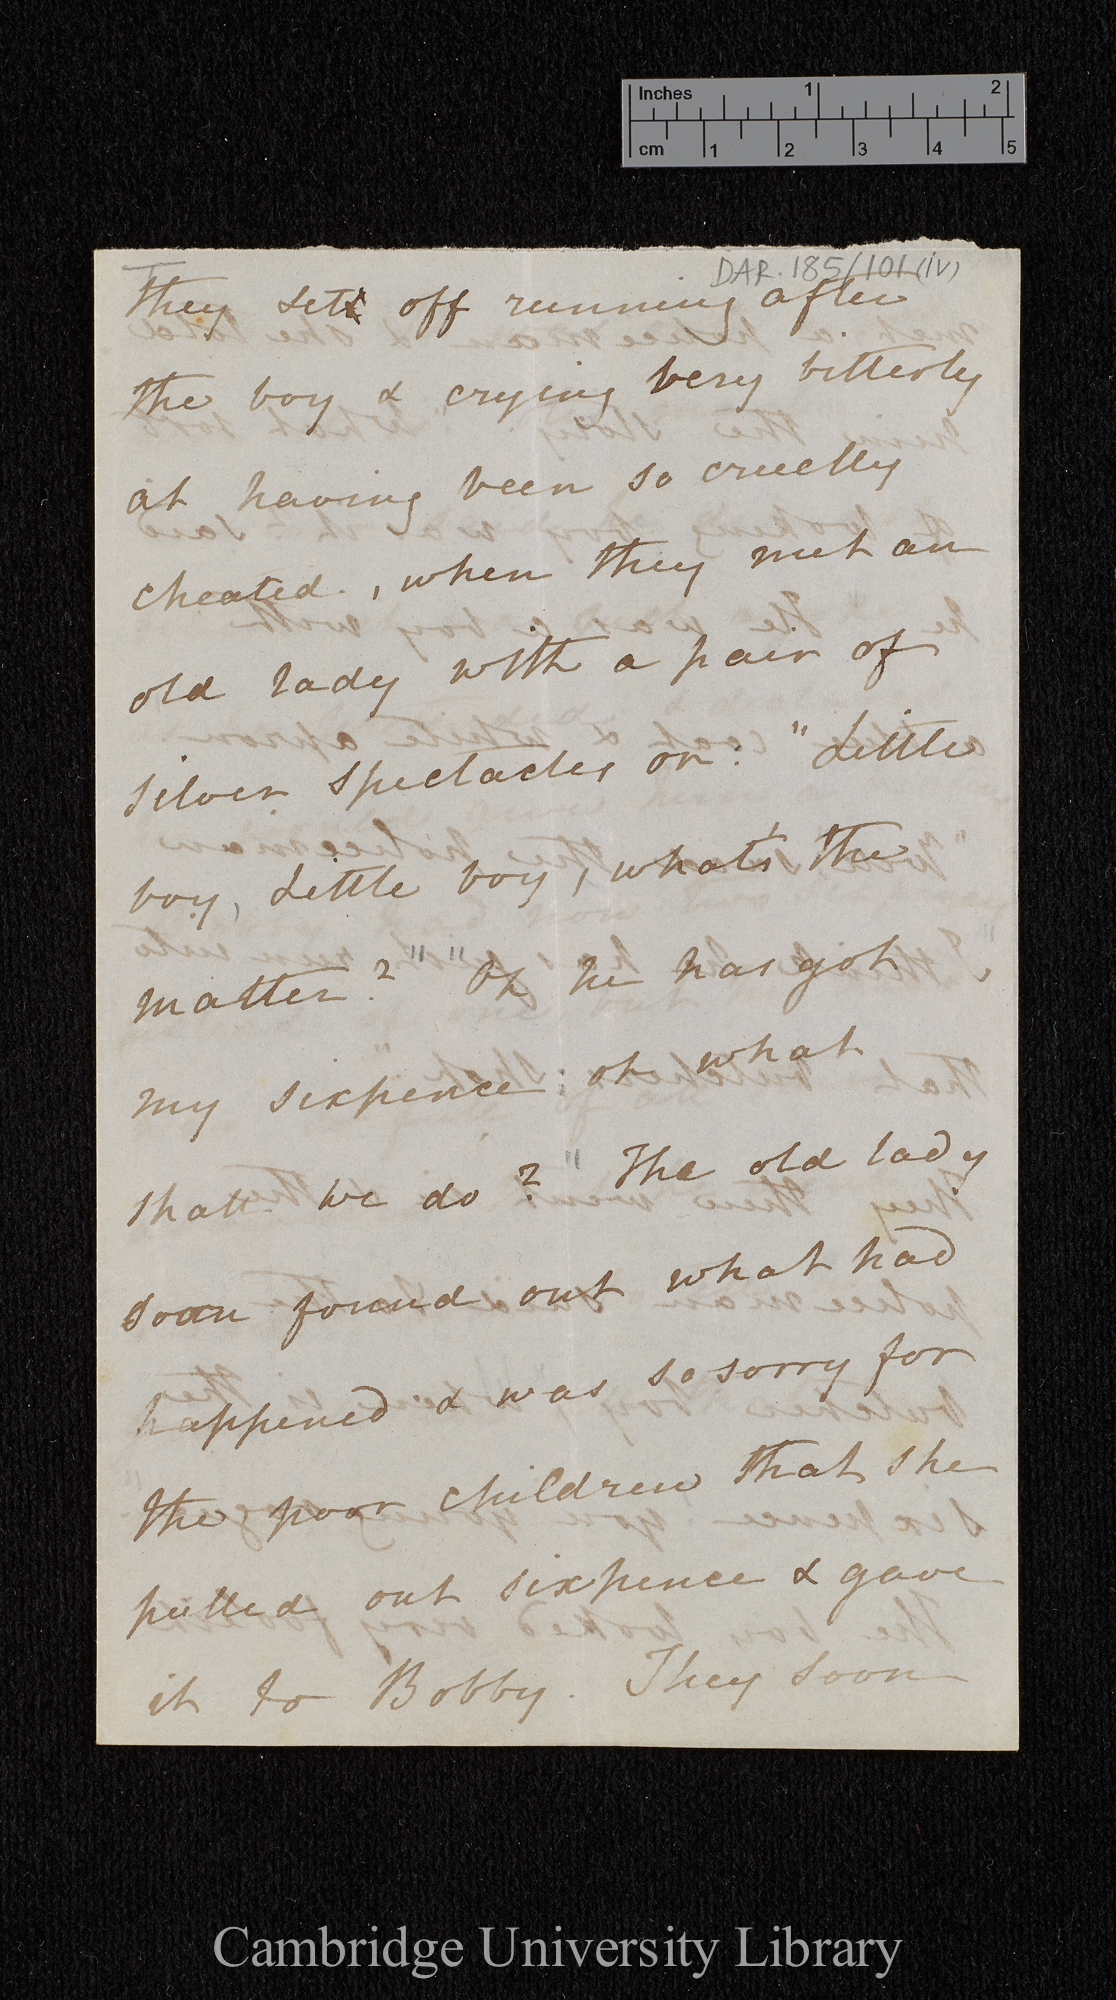 Inches 1 2
cm 1 2 3 4 5
DAR. 185/101 (iv)
They set off running after
the boy & crying very bitterly
at having been so cruelly
cheated, when they met an
old lady with a pair of
silver spectacles on: "Little
boy, little boy, what's the
matter?" "Oh he has got
my sixpence; oh what
shall we do?" The old lady
soon found out what had
happened & was so sorry for
the poor children that she
pulled out sixpence & gave
it to Bobby. They soon
Cambridge University Library